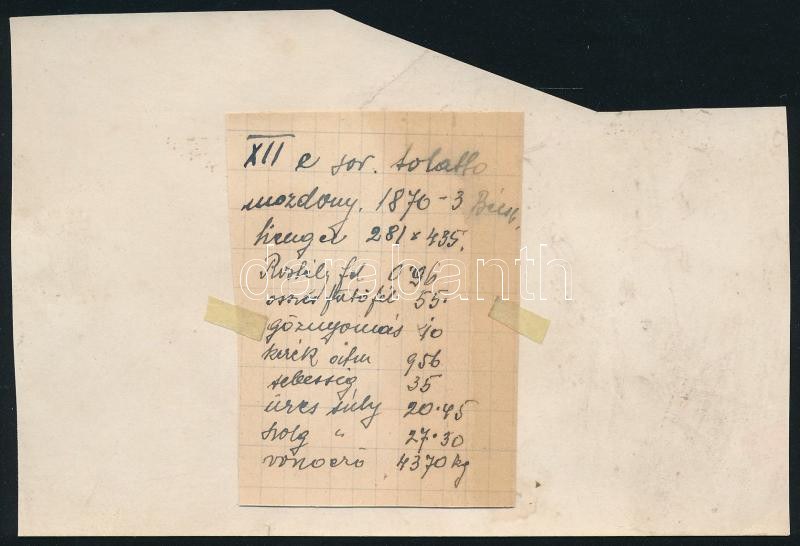 XII e sor. tolatto
mozdony. 1870-3 Bécsb.
henger 281 x 435.
Rostély fel 0.96
összes fűtőfel 55.
gőznyomás 10
kerék átm 956
sebesség 35
üres súly 20.45
szolg " 27.30
vonoerő 4370 kg
darabanth